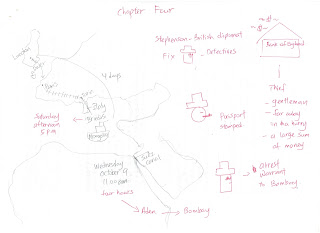 Chapter Four
London
Paris
4 days
Italy
Brindisi
Mongolia
Saturday
afternoon
5 pm
Suez
canal
Wednesday
October 9
11:00 am
four hours
Aden
Bombay
Stephenson - British diplomat
Fix
- Detectives
Passport
stamped
arrest
warrant
to Bombay
Bank of England
Thief
- gentleman
- far away
in a hurry
- a large sum
of money